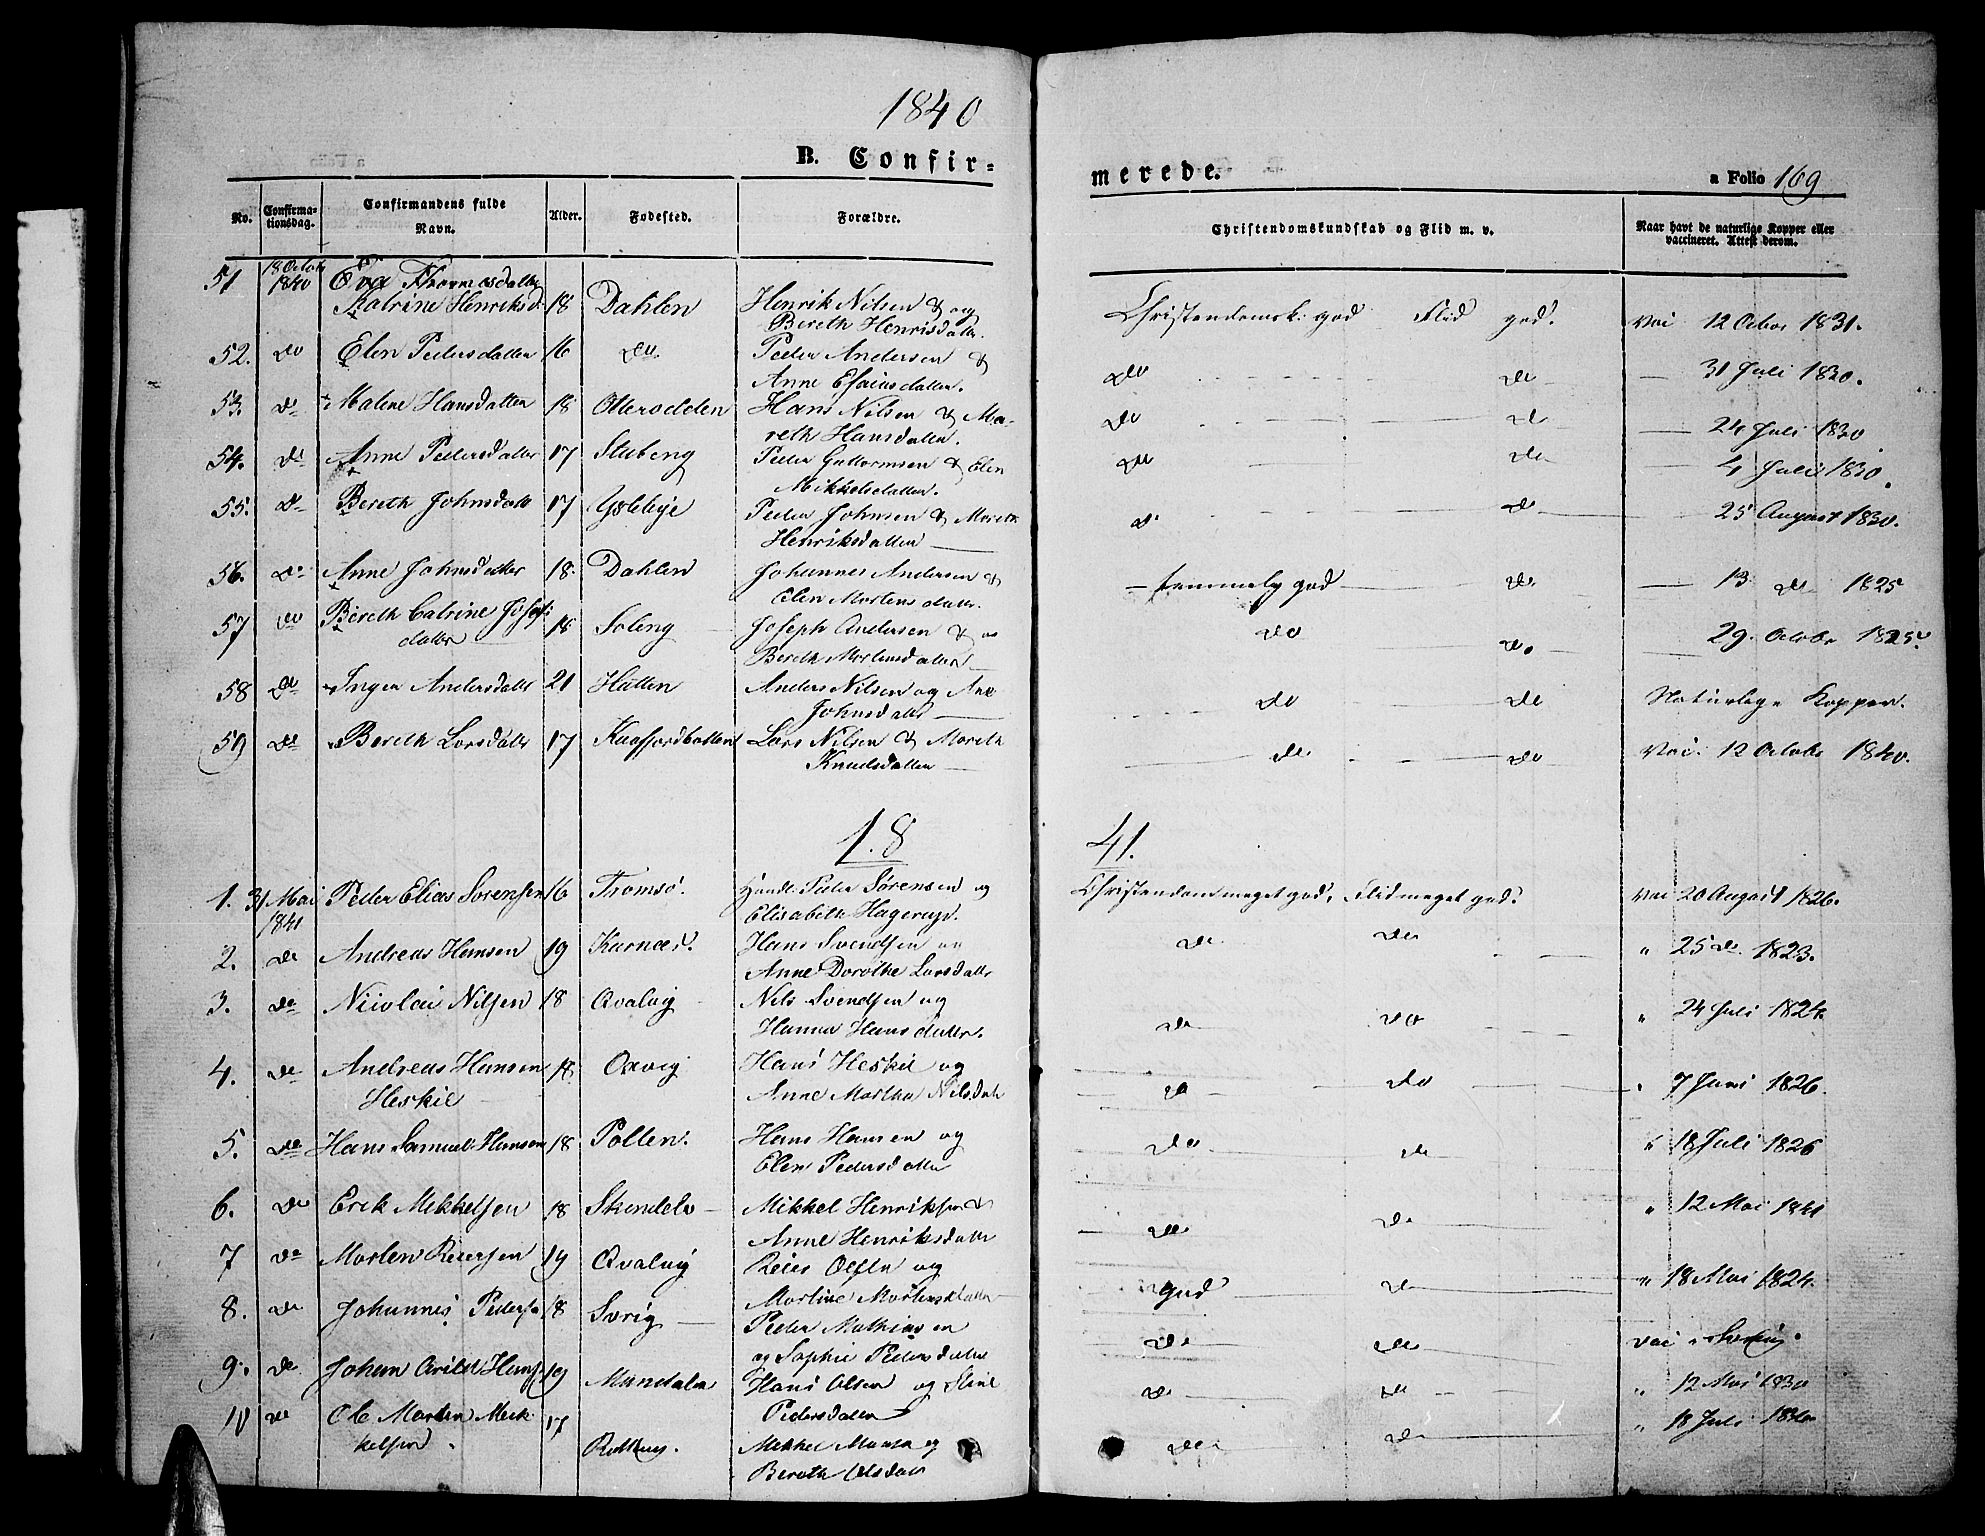 1840
B. Confir-
merede.
a Folio 169
No.
Confirma-
tionsdag.
Confirmandens fulde
Navn.
Alder.
Fødested.
Forældre.
Christendomskundskab og Flid m. v.
Naar havt de naturlige Kopper eller
vaccineret. Attest derom.
51 18 Octob 1840 Katrine Henriksd. 18 Dahlen Henrik Nilsen & og
Bereth Henrisdatter. Christendomsk: god Flid god. Vac 12 Octor 1831.
52. do Elen Pedersdatter 16 do. Peder Andersen &
Anne Esaiasdatter. do do 31 Juli 1830.
53. do Malene Hansdatter 18 Otterodden Hans Nilsen & Ma-
reth Hansdatter. do do 24 Juli 1830
54. do Anne Pedersdatter 17 Stubeng Peder Guttormsen & Elen
Mikkelsdatter. do do 4 Juli 1830.
55. do Bereth Johnsdatt 17 Peder Johnsen & Mareth
Henriksdatter do do 25 August 1830.
56. do Anne Johnsdatter 18. Dahlen Johannes Andersen &
Elen Mortensdatter. temmelig god do 13 do 1825
57 do Bereth Catrine Josefs
datter 18 Soleng Joseph Andersen &
Bereth Mortensdatter do do. 29. Octobr 1825.
58 do Inger Andersdatt 21 Hatten Anders Nilsen og Ane
Johnsdatter do do Naturlige Kopper.
59 do Bereth Larsdatter 17 Kaafjordbotten Lars Nilsen & Mareth
Knudsdatter do do Vac. 12 Octobr 1840.
18
41.
1. 31 Mai
1841 Peder Elias Sørensen 16 Tromsø. Handl. Peder Sørensen og
Elisabeth Hagerup. Christendom meget god, Flid meget god. Vac 20 August 1826.
2. do Andreas Hansen 19 Karnæs. Hans Svendsen og
Anne Dorothe Larsdatter do do " 25 do 1823.
3. do Nicolai Nilsen 18 Qvalvig Nils Svendsen og
Hanna Hansdatter. do do " 24 Juli 1824.
4. do Andreas Hansen
Heskil 18 Oxvig Hans Heskil og
Anne Martha Nilsdatt do do " 7 Juni 1826.
5. do Hans Samuel Hansen 18 Pollen. Hans Hansen og
Elen Pedersdatter do do " 18 Juli 1826
6. do Erik Mekkelsen 18 Skendelv Mikkel Henriksen &
Anne Henriksdatter do do " 12 Mai 1841
7 do Morten Reiersen 19 Qvalvig Reier Olsen og
Martine Mortensdatter god do " 18 Mai 1824.
8. do Johannes Peders 18 Sorig Peder Mathiasen
og Sophie Pedersdatter do do Vac
9. do Johan Arild Hans 19 Mandalen Hans Olsen og Eline
Pedersdatter do do " 12 Mai 1830
10 do Ole Morten Mek-
kelsen. 17 Mekkel og
Bereth Olsdatt do do " 18 Juli